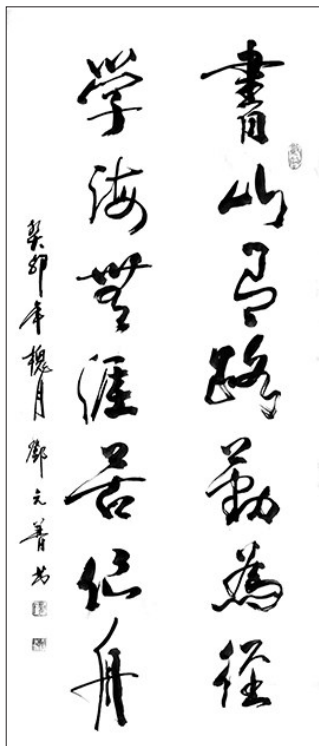 書山有路勤為徑
学海無涯苦作舟
癸卯年槐月 鄧元书